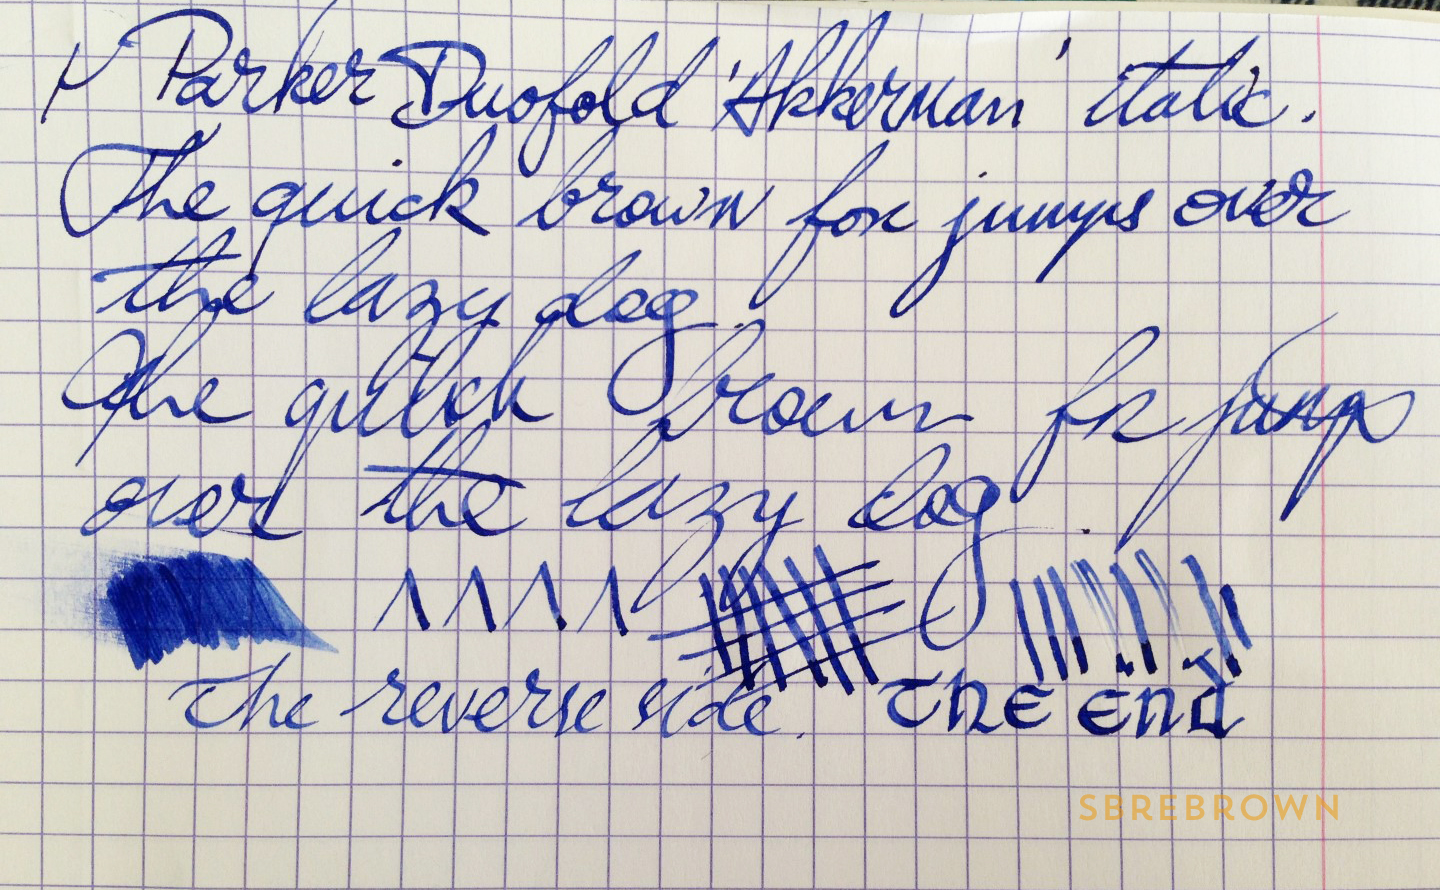 Parker Duofold 'Akkerman' italic.
The quick brown fox jumps over
the lazy dog.
The quick brown fx jumps
over the lazy dog.
The reverse side. The End
SBREBROWN